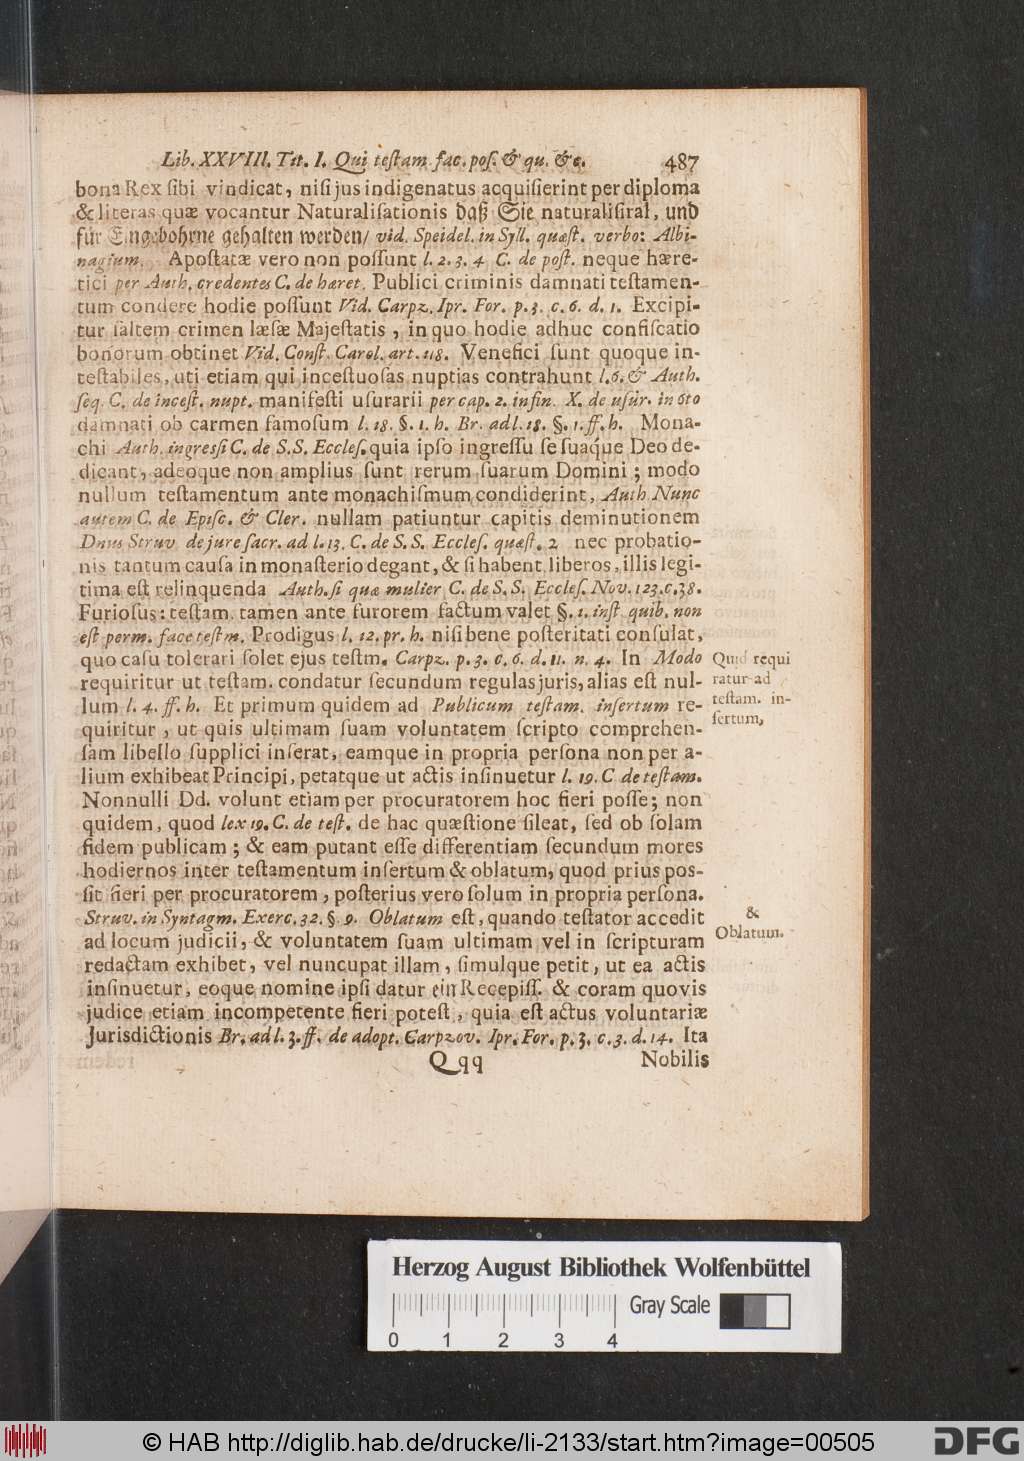 Lib. XXVIII. Tit. I. Qui teſtam. fac. poſ. & qu. &c. 487
bona Rex ſibi vindicat, niſi jus indigenatus acquiſierint per diploma
& literas quæ vocantur Naturaliſationis daß Sie naturaliſiral, und
für Eingebohrne gehalten werden/ vid. Speidel. in Syll. quæſt. verbo: Albi-
nagium. Apoſtatæ vero non poſſunt l. 2. 3. 4 C. de poſt. neque hære-
tici per Auth. credentes C. de hæret. Publici criminis damnati teſtamen-
tum condere hodie poſſunt Vid. Carpz. Ipr. For. p. 3. c. 6. d. 1. Excipi-
tur ſaltem crimen læſæ Majeſtatis, in quo hodie adhuc confiſcatio
bonorum obtinet Vid. Conſt. Carol. art. 118. Venefici ſunt quoque in-
teſtabiles, uti etiam qui inceſtuoſas nuptias contrahunt l. 6. & Auth.
ſeq. C. de inceſt. nupt. manifeſti uſurarii per cap. 2. in fin. X. de uſur. in 6to
damnati ob carmen famoſum l. 18. §. 1. h. Br. ad l. 18. §. 1. ff. h. Mona-
chi Auth. ingreſſi C. de S.S. Eccleſ. quia ipſo ingreſſu ſe ſuaq́ue Deo de-
dicant, adeoque non amplius ſunt rerum ſuarum Domini; modo
nullum teſtamentum ante monachiſmum condiderint, Auth Nunc
autem C. de Epiſc. & Cler. nullam patiuntur capitis deminutionem
Dnus Struv de jure ſacr. ad l. 13. C. de S. S. Eccleſ. quæſt. 2 nec probatio-
nis tantum cauſa in monaſterio degant, & ſi habent liberos, illis legi-
tima eſt relinquenda Auth. ſi qua mulier C. de S. S. Eccleſ. Nov. 123. c. 38.
Furioſus: teſtam. tamen ante furorem factum valet §. 1. inſt quib. non
eſt perm. face teſtm. Prodigus l. 12. pr. h. niſi bene poſteritati conſulat,
quo caſu tolerari ſolet ejus teſtm. Carpz. p. 3. c. 6. d. 11. n. 4. In Modo
requiritur ut teſtam. condatur ſecundum regulas juris, alias eſt nul-
lum l. 4. ff. h. Et primum quidem ad Publicum teſtam. inſertum re-
quiritur, ut quis ultimam ſuam voluntatem ſcripto comprehen-
ſam libello ſupplici inſerat, eamque in propria perſona non per a-
lium exhibeat Principi, petatque ut actis inſinuetur l. 19. C de teſtam.
Nonnulli Dd. volunt etiam per procuratorem hoc fieri poſſe; non
quidem, quod lex 19. C. de teſt. de hac quæſtione ſileat, ſed ob ſolam
fidem publicam; & eam putant eſſe differentiam ſecundum mores
hodiernos inter teſtamentum inſertum & oblatum, quod prius poſ-
ſit fieri per procuratorem, poſterius vero ſolum in propria perſona.
Struv. in Syntagm. Exerc. 32. § 9. Oblatum eſt, quando teſtator accedit
ad locum judicii, & voluntatem ſuam ultimam vel in ſcripturam
redactam exhibet, vel nuncupat illam, ſimulque petit, ut ea actis
inſinuetur, eoque nomine ipſi datur ein Recepiſſ. & coram quovis
judice etiam incompetente fieri poteſt, quia eſt actus voluntariæ
Jurisdictionis Br. ad l. 3. ff. de adopt. Carpzov. Ipr. For. p. 3. c. 3. d. 14. Ita
Qqq Nobilis
Quid requi
ratur ad
teſtam. in-
ſertum,
&
Oblatum.
Herzog August Bibliothek Wolfenbüttel
Gray Scale
0 1 2 3 4
© HAB http://diglib.hab.de/drucke/li-2133/start.htm?image=00505
DFG